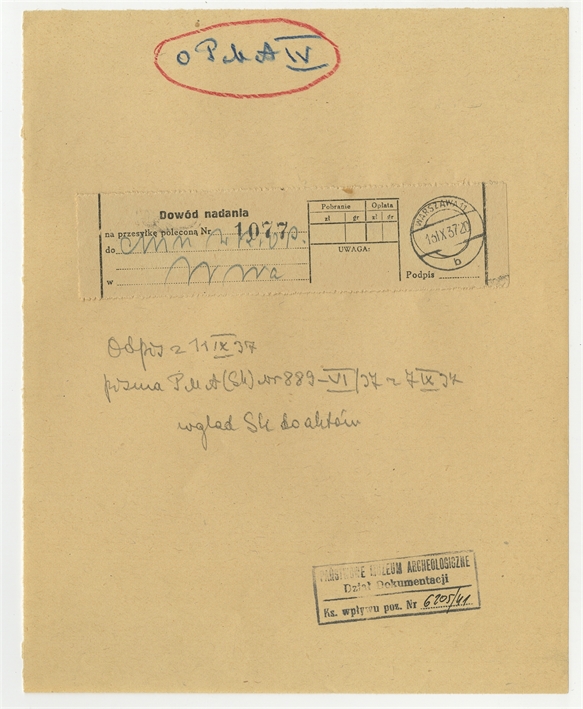 o PMA IV
Dowód nadania
na przesyłkę poleconą Nr. 1077
do
w Wwa
Pobranie Opłata
zł gr zł gr
UWAGA:
WARSZAWA 11
15 IX 37 20
b
Podpis
Odpis z 11 IX 37
pisma PMA (Sk) nr 889-VI/37 z 7 IX 37
wgląd Sk do aktów
PAŃSTWOWE MUZEUM ARCHEOLOGICZNE
Dział Dokumentacji
Ks. wpływu poz. Nr 6205/41